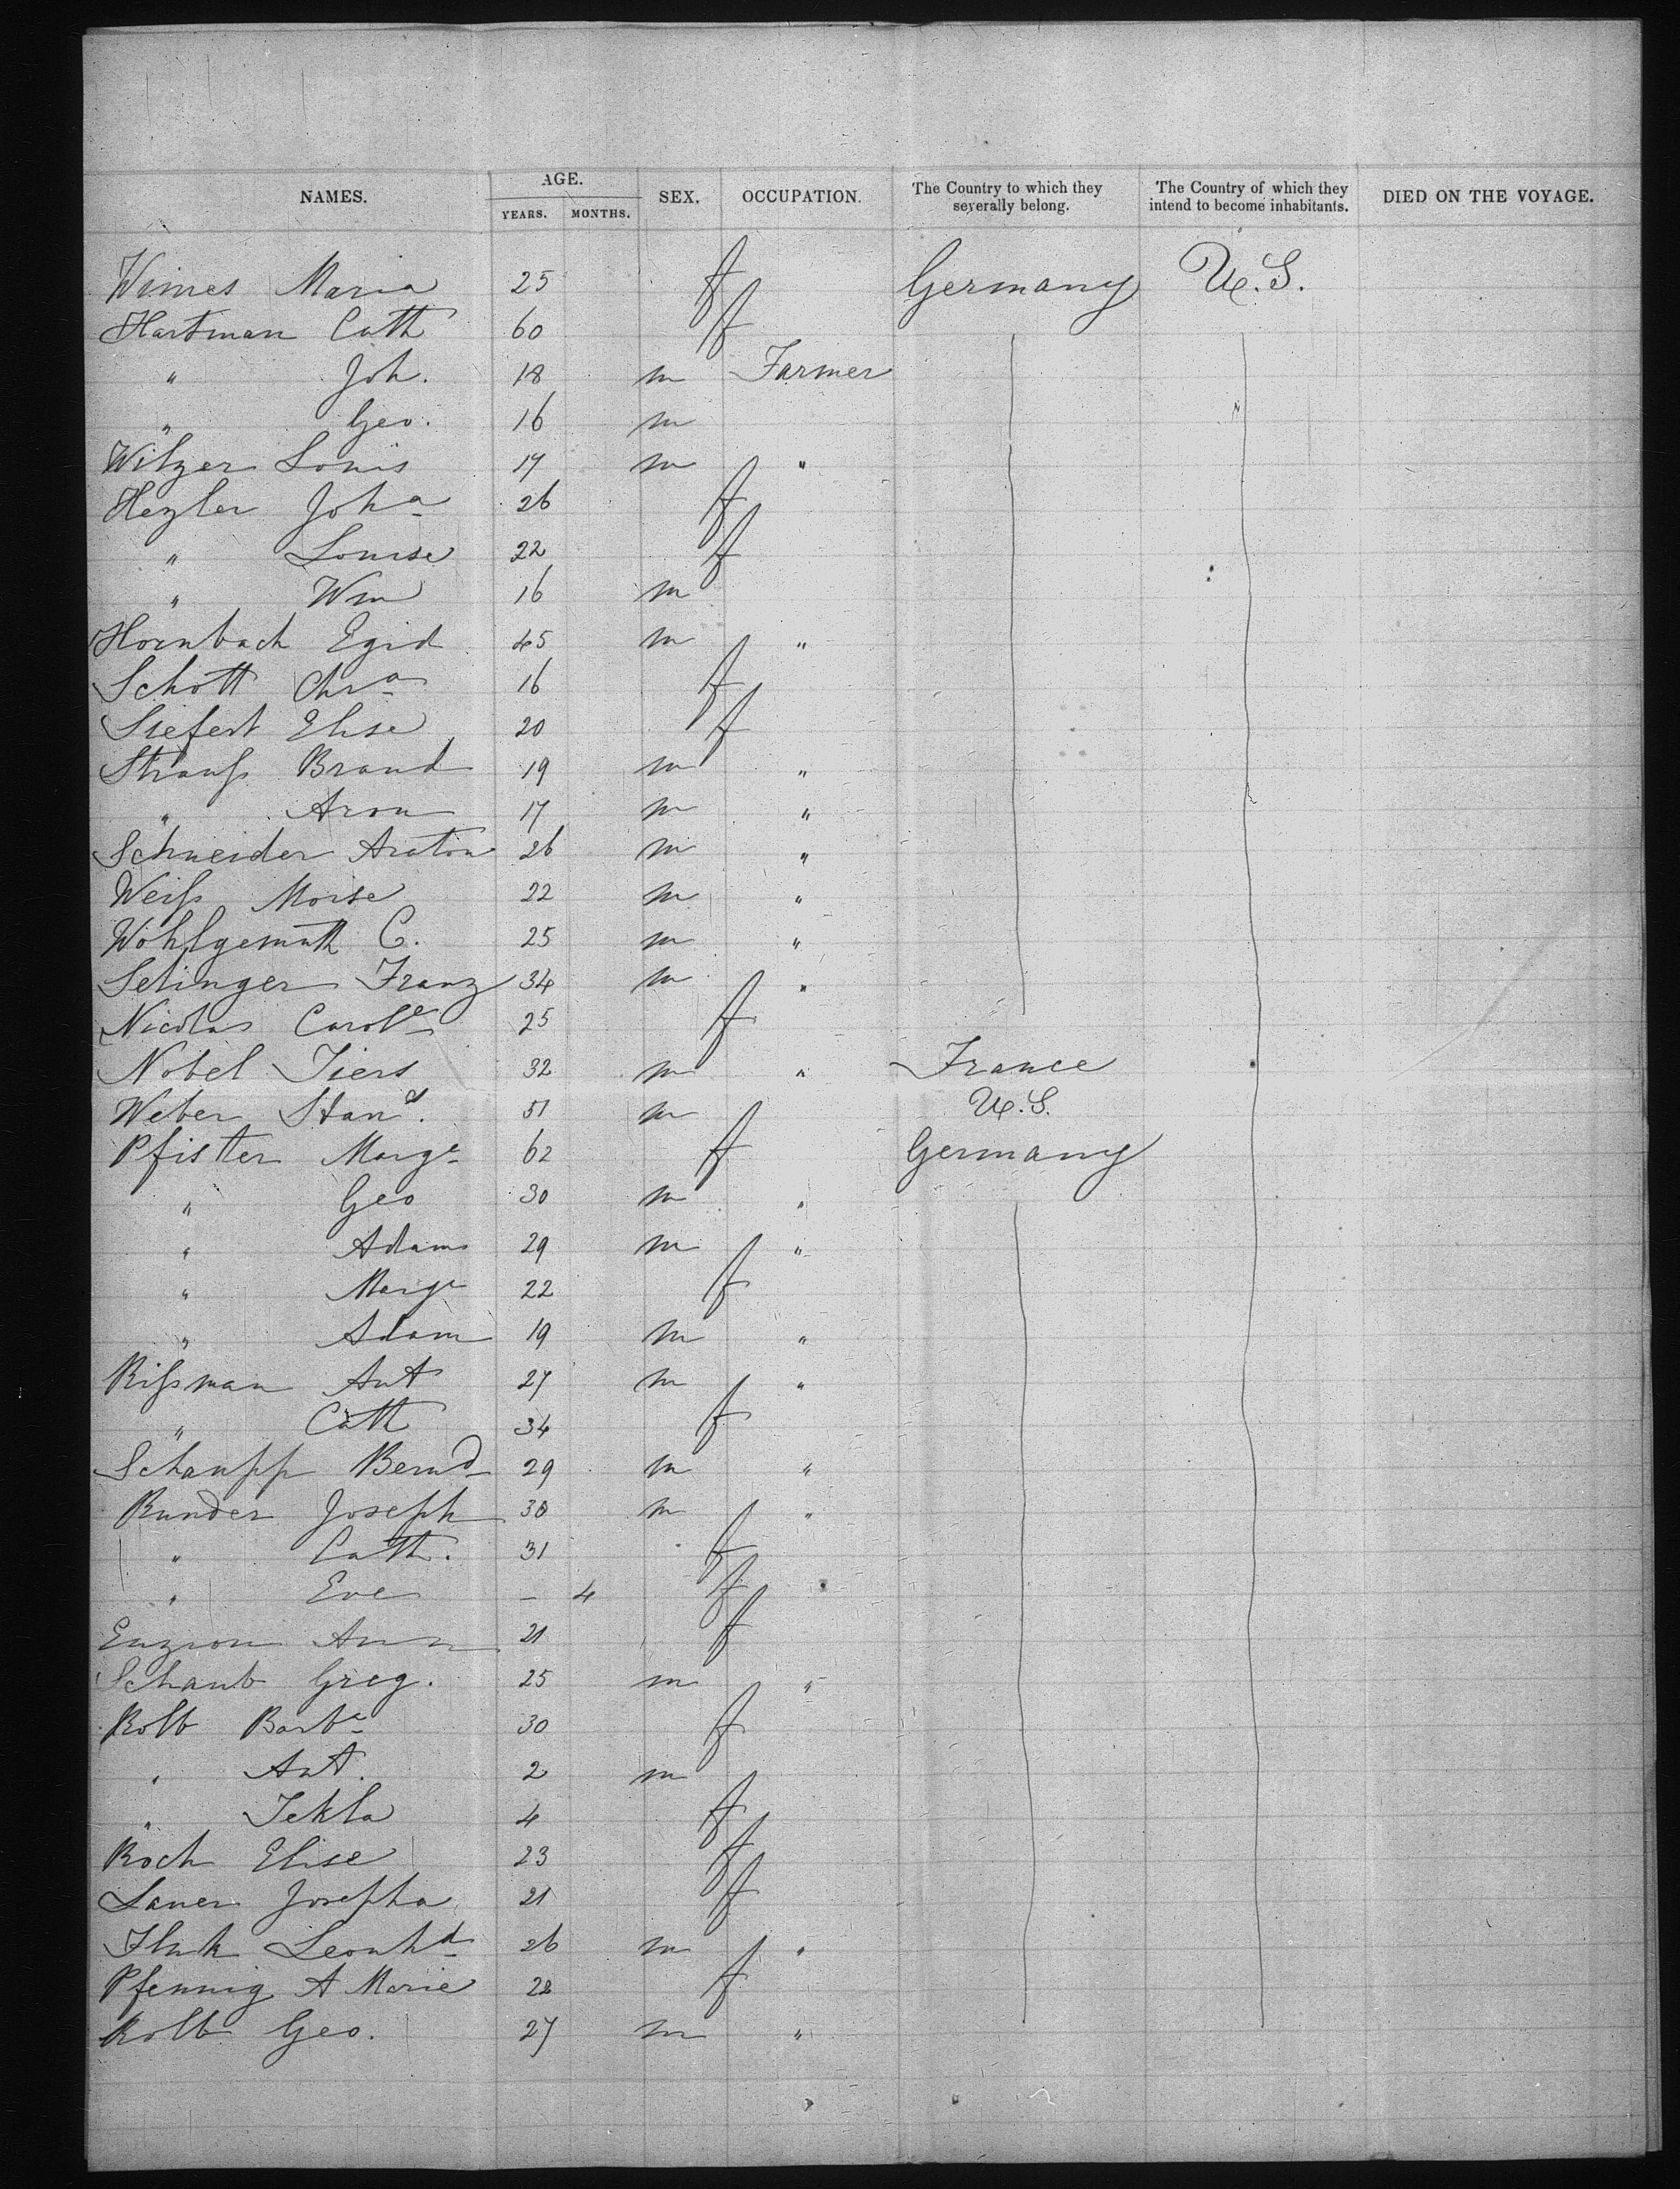 NAMES. AGE. SEX. OCCUPATION. The Country to which they severally belong. The Country of which they intend to become inhabitants. DIED ON THE VOYAGE.
YEARS. MONTHS.
Wimes Maria 25 f Germany U.S.
Hartman Cath 60 f
" Joh. 18 m Farmer
" Geo. 16 m
Wilzer Louis 17 m "
Hezler Joha 26 f
" Louise 22 f
" Wm 16 m
Hornbach Egid 45 m "
Schott Chra 16 f
Siefert Elise 20 f
Strauss Brand 19 m "
" Aron 17 m "
Schneider Anton 26 m "
Weiss Moise 22 m "
Wohlgemuth C. 25 m "
Setinger Franz 34 m "
Nicolas Carole 25 f
Nobel Tiers 32 m " France
Weber Stand. 51 m U.S.
Pfister Marge 62 f Germany
" Geo 30 m "
" Adam 29 m "
" Marge 22 f
" Adam 19 m "
Rissman Ant 27 m "
" Cath 34 f
Schaupp Bernd 29 m "
Runder Joseph 30 m "
" Cath. 31 f
" Eve – 4 f
Ann 21 f
Schaub Greg. 25 m "
Kolb Barbe 30 f
" Ant. 2 m
" Tekla 4 f
Koch Elise 23 f
Lauer Josepha 21 f
Leonhd 26 m "
Pfennig A Marie 22 f
Kolb Geo. 27 m "